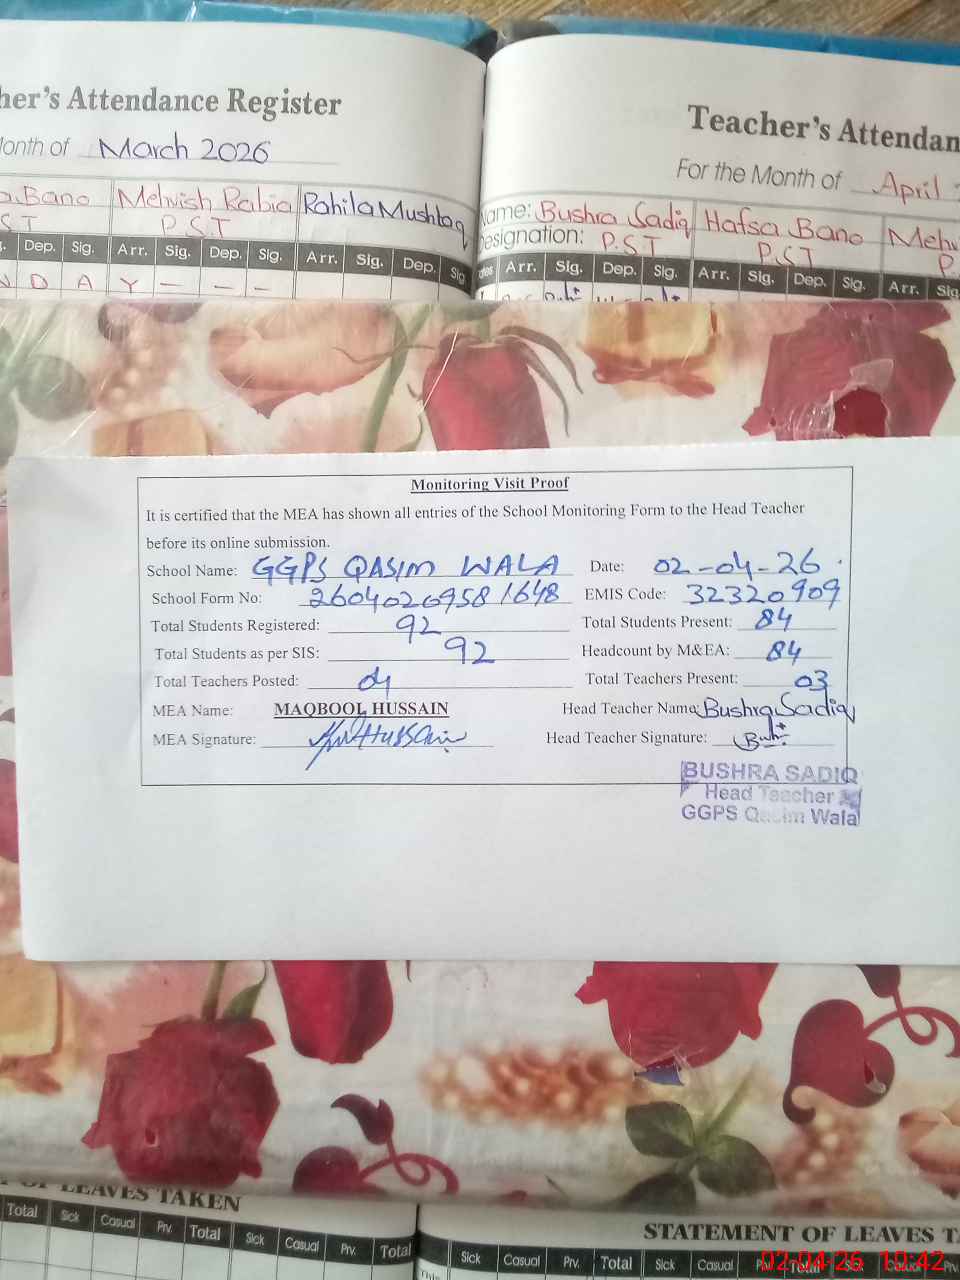 her's Attendance Register
Month of March 2026
Bano Mehvish Rabia Rahila Mushtaq
S T P.S.T
Dep. Sig. Arr. Sig. Dep. Sig. Arr. Sig. Dep. Sig
N D A Y — — —
Teacher's Attendan
For the Month of April
Name: Bushra Sadiq Hafsa Bano Mehv
Designation: P.S.T P.S.T P.
Arr. Sig. Dep. Sig. Arr. Sig. Dep. Sig. Arr. Sig
Monitoring Visit Proof
It is certified that the MEA has shown all entries of the School Monitoring Form to the Head Teacher
before its online submission.
School Name: GGPS QASIM WALA Date: 02-04-26
School Form No: 26040209581648 EMIS Code: 32320909
Total Students Registered: 92 Total Students Present: 84
Total Students as per SIS: 92 Headcount by M&EA: 84
Total Teachers Posted: 04 Total Teachers Present: 03
MEA Name: MAQBOOL HUSSAIN Head Teacher Name: Bushra Sadiq
MEA Signature: Hussain Head Teacher Signature:
BUSHRA SADIQ
Head Teacher
GGPS Qasim Wala
OF LEAVES TAKEN
Total Sick Casual Prv. Total Sick Casual Prv. Total
STATEMENT OF LEAVES T
Sick Casual Prv. Total Sick Casual Prv. Total Sick Casual Prv.
02-04-26 10:42